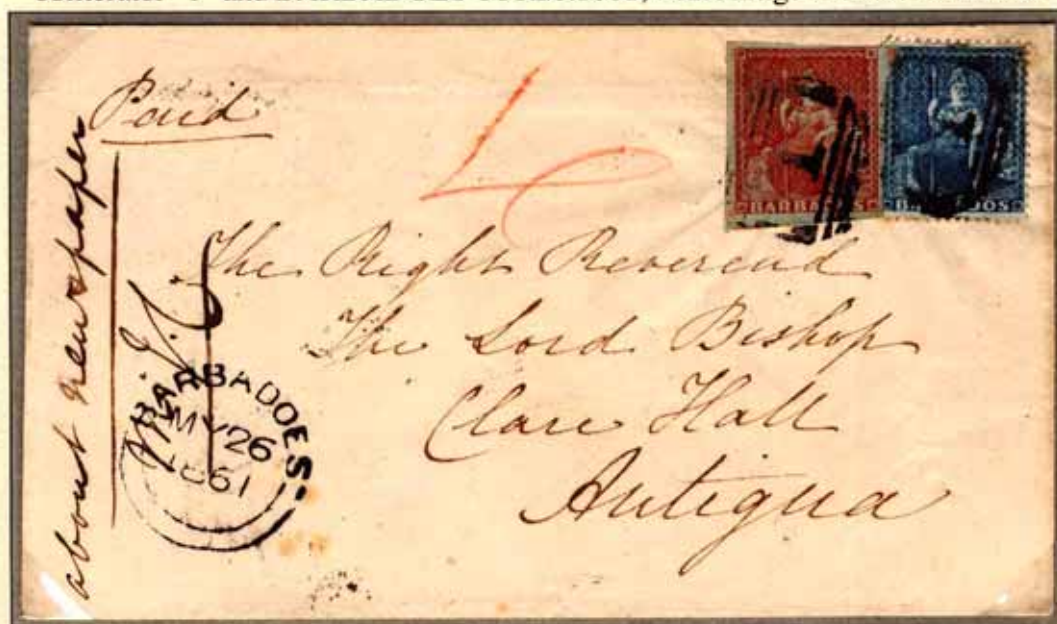 Paid
about newspaper
BARBADOS
BARBADOS
The Right Reverend
The Lord Bishop
Clare Hall
Antigua
BARBADOES
MY 26
1861